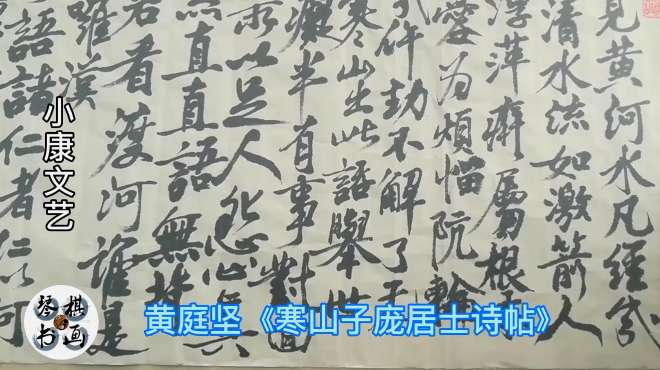 見黄河水凡經幾
清水流如激箭人
浮萍癡屬根
愛為煩惱阬輪
劫不解了
寒山出此語舉世
癡半有事對面
所以足人怨心
直直語無背
君看渡河誰是
漢
語諸仁者仁以何
小康文艺
琴棋书画
黄庭坚《寒山子庞居士诗帖》